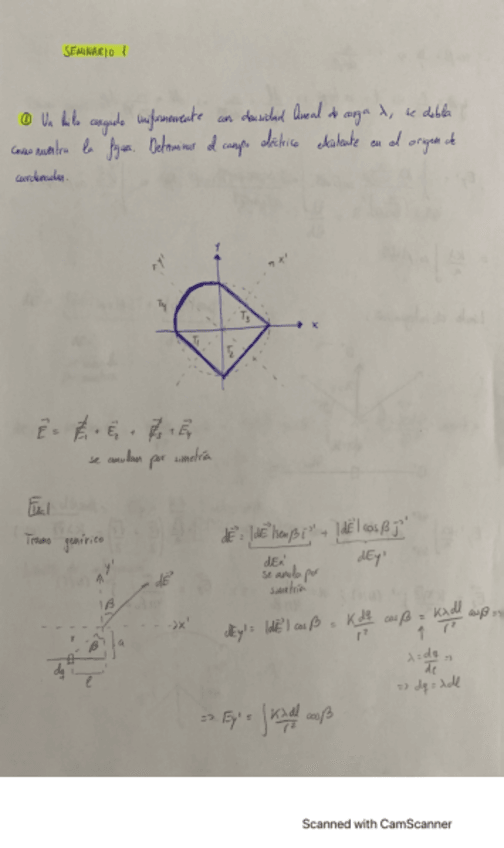 SEMINARIO 1
② Un hilo cargado uniformemente con densidad lineal de carga λ, se dobla
como muestra la figura. Determinar el campo eléctrico existente en el origen de
coordenadas.
Y
x'
T4
T3
x
T1
T2
E⃗ = E⃗1 + E⃗2 + E⃗3 + E⃗4
se anulan por simetría
Tramo genérico
dE⃗ = |dE⃗| sen β i⃗' + |dE⃗| cos β j⃗'
dEx' dEy'
se anula por
simetría
y'
dE⃗
β
x'
r β a
dq
l
dEy' = |dE⃗| cos β = K dq/r² cos β = Kλdl/r² cos β =>
λ = dq/dl =>
=> dq = λdl
=> Ey' = ∫ Kλdl/r² cos β
Scanned with CamScanner